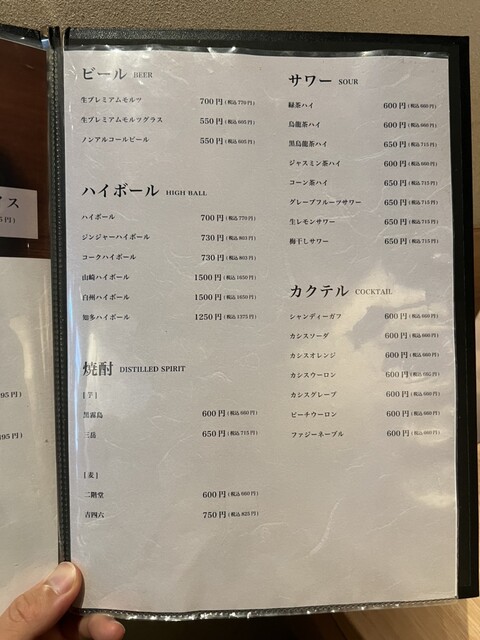 ビール BEER
生プレミアムモルツ 700円(税込770円)
生プレミアムモルツグラス 550円(税込605円)
ノンアルコールビール 550円(税込605円)
ハイボール HIGH BALL
ハイボール 700円(税込770円)
ジンジャーハイボール 730円(税込803円)
コークハイボール 730円(税込803円)
山崎ハイボール 1500円(税込1650円)
白州ハイボール 1500円(税込1650円)
知多ハイボール 1250円(税込1375円)
焼酎 DISTILLED SPIRIT
[芋]
黒霧島 600円(税込660円)
三岳 650円(税込715円)
[麦]
二階堂 600円(税込660円)
吉四六 750円(税込825円)
サワー SOUR
緑茶ハイ 600円(税込660円)
烏龍茶ハイ 600円(税込660円)
黒烏龍茶ハイ 650円(税込715円)
ジャスミン茶ハイ 600円(税込660円)
コーン茶ハイ 650円(税込715円)
グレープフルーツサワー 650円(税込715円)
生レモンサワー 650円(税込715円)
梅干しサワー 650円(税込715円)
カクテル COCKTAIL
シャンディーガフ 600円(税込660円)
カシスソーダ 600円(税込660円)
カシスオレンジ 600円(税込660円)
カシスウーロン 600円(税込660円)
カシスグレープ 600円(税込660円)
ピーチウーロン 600円(税込660円)
ファジーネーブル 600円(税込660円)